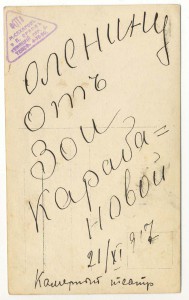 Оленину
Отъ
Зои
Караба=
новой
21/XI 917
Камерный театр